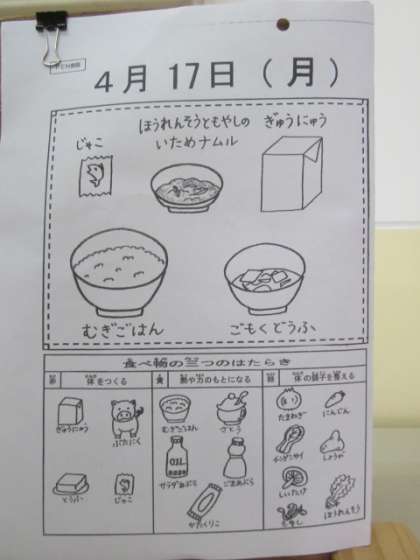 4月17日(月)
ほうれんそうともやしの
いためナムル
ぎゅうにゅう
じゃこ
むぎごはん
ごもくどうふ
食べ物の三つのはたらき
赤 体をつくる
黄 熱や力のもとになる
緑 体の調子を整える
ぎゅうにゅう
ぶたにく
とうふ
じゃこ
むぎごはん
さとう
サラダあぶら
ごまあぶら
かたくりこ
たまねぎ
にんじん
チンゲンサイ
しょうが
しいたけ
もやし
ほうれんそう